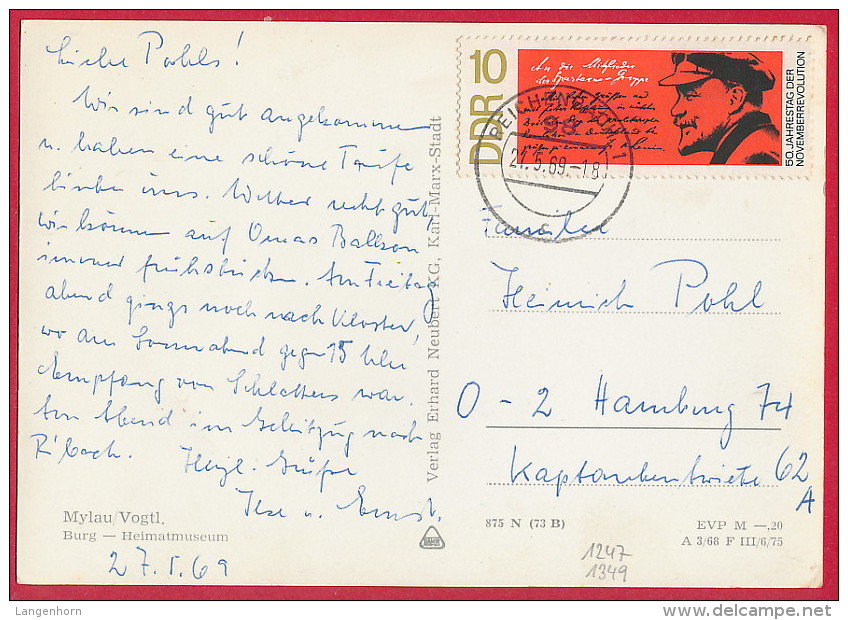 Liebe Pohls!
Wir sind gut angekommen
u. haben eine schöne Taufe
hinter uns. Wetter recht gut,
wir können auf Omas Balkon
immer frühstücken. Am Freitag
abend gings noch nach Kloster,
wo am Sonnabend gegen 15 Uhr
Empfang von Schlatters war.
Am Abend im Geleitzug nach
R'bach. Herzl. Grüße
Ilse u. Ernst.
Mylau/Vogtl.
Burg — Heimatmuseum
27.5.69
Verlag Erhard Neubert KG, Karl-Marx-Stadt
10
DDR
An die Mitglieder
der Spartacus-Gruppe
50. JAHRESTAG DER
NOVEMBERREVOLUTION
REICHENBACH 1
98
27.5.69.-18
c
Familie
Heinrich Pohl
0 - 2 Hamburg 74
Kaptorbentwiete 62
A
875 N (73 B)
EVP M —,20
A 3/68 F III/6/75
1247
1349
Langenhorn
delcampe.net